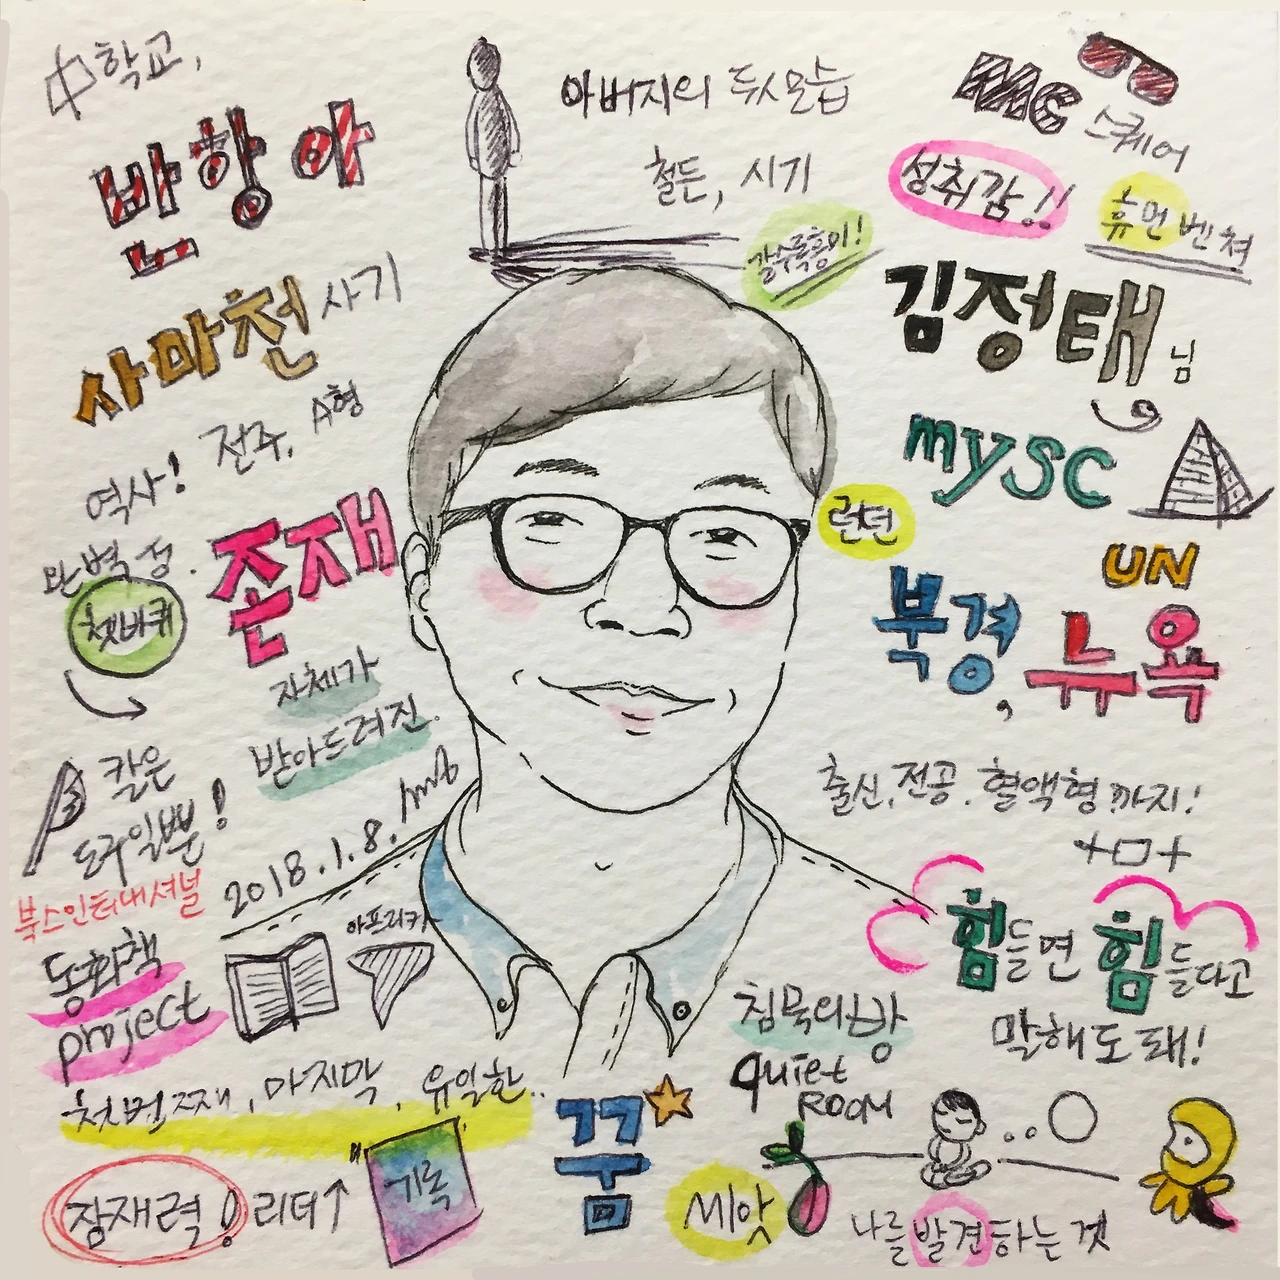 中학교,
반항아
사마천 사기
역사! 전주, A형
완벽 정.
쳇바퀴
존재
자체가
받아드려진.
칼은
도구일뿐!
2018.1.8.
북스인터내셔널
동화책
project
아프리카
첫번째, 마지막, 유일한..
잠재력! 리더↑
기록
아버지의 두모습
철든, 시기
갈수록흥미!
MC 스퀘어
성취감!!
휴먼벤쳐
김정태 님
mysc
런던
UN
북경, 뉴욕
출신, 전공. 혈액형까지!
+ㅁ+
힘들면 힘들다고
말해도 돼!
침묵의방
quiet
ROOM
꿈
씨앗
나를발견하는것